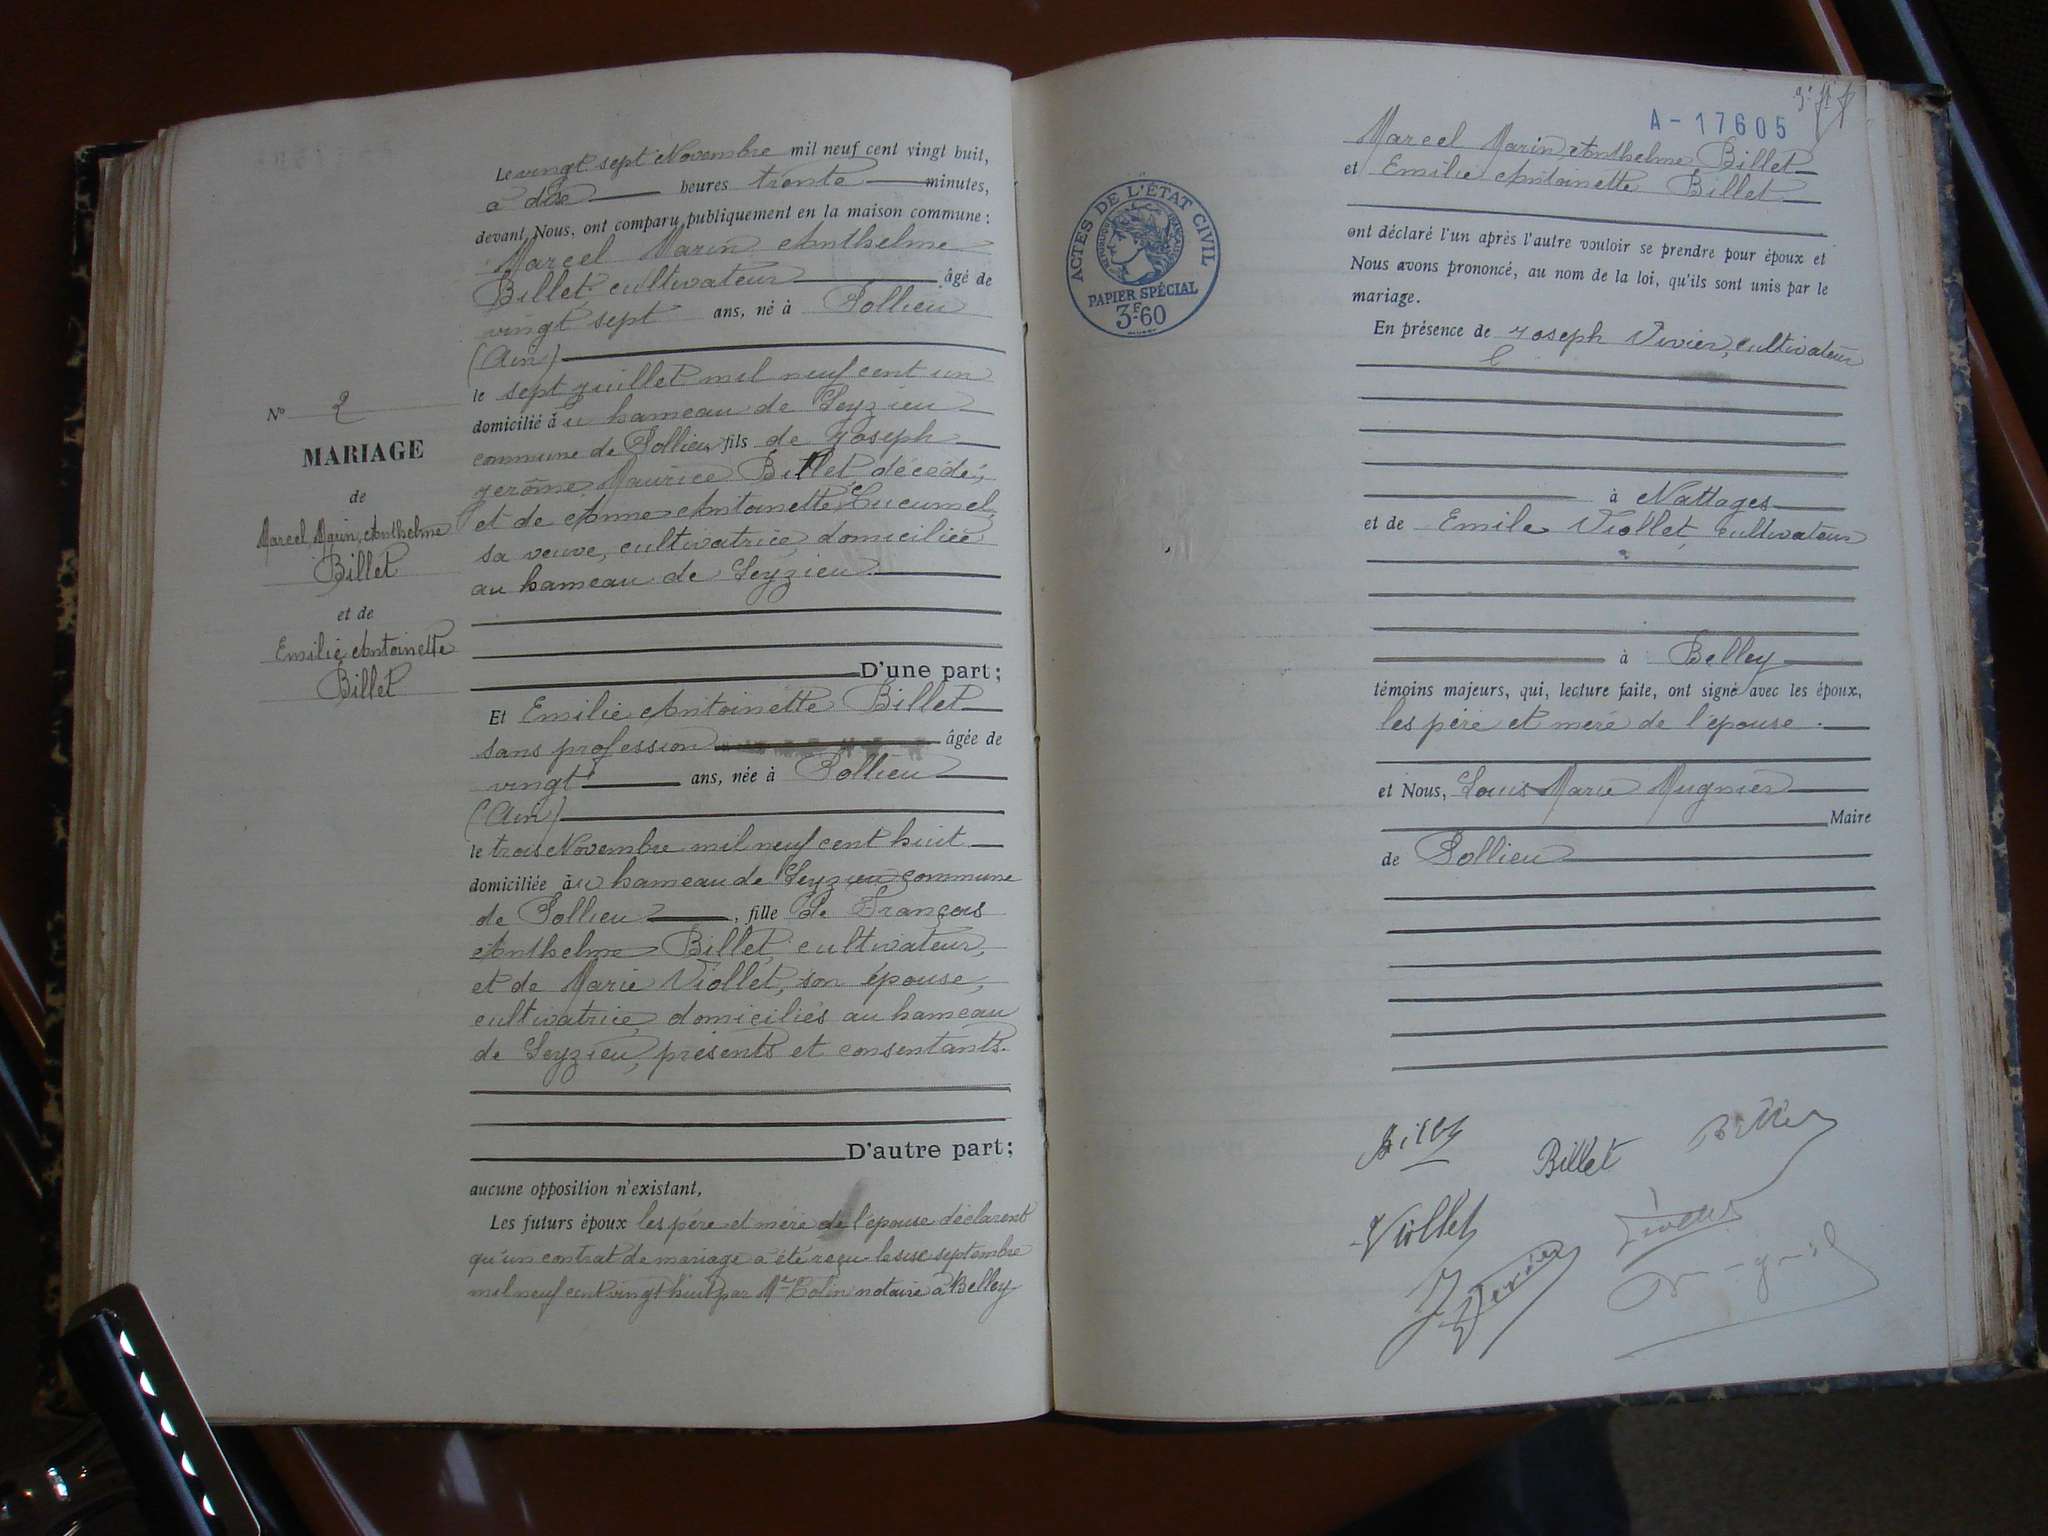 N° 2
MARIAGE
de
Marcel Marin Anthelme
Billet
et de
Emilie Antoinette
Billet
Le vingt sept Novembre mil neuf cent vingt huit,
à dix heures trente minutes,
devant Nous, ont comparu publiquement en la maison commune :
Marcel Marin Anthelme
Billet cultivateur âgé de
vingt sept ans, né à Pollieu
(Ain)
le sept juillet mil neuf cent un
domicilié au hameau de Leyzieu
commune de Pollieu, fils de Joseph
Jerôme Maurice Billet, décédé,
et de Anne Antoinette Cucumel,
sa veuve, cultivatrice, domiciliée
au hameau de Leyzieu.
D'une part;
Et Emilie Antoinette Billet
sans profession âgée de
vingt ans, née à Pollieu
(Ain)
le trois Novembre mil neuf cent huit
domiciliée au hameau de Leyzieu commune
de Pollieu, fille de François
Anthelme Billet, cultivateur,
et de Marie Viollet, son épouse,
cultivatrice, domiciliés au hameau
de Leyzieu, présents et consentants.
D'autre part;
aucune opposition n'existant,
Les futurs époux les père et mère de l'épouse déclarent
qu'un contrat de mariage a été reçu le six septembre
mil neuf cent vingt huit par Me Colin notaire à Belley
A-17605
ACTES DE L'ÉTAT CIVIL
RÉPUBLIQUE FRANÇAISE
PAPIER SPÉCIAL
3F.60
Marcel Marin Anthelme Billet
et Emilie Antoinette Billet
ont déclaré l'un après l'autre vouloir se prendre pour époux et
Nous avons prononcé, au nom de la loi, qu'ils sont unis par le
mariage.
En présence de Joseph Vivier, cultivateur
à Nattages
et de Emile Viollet, cultivateur
à Belley
témoins majeurs, qui, lecture faite, ont signé avec les époux,
les père et mère de l'épouse.
et Nous, Louis Marie Mugnier
Maire
de Pollieu
Billet Billet Billet
Viollet Viollet
J Vivier Mugnier